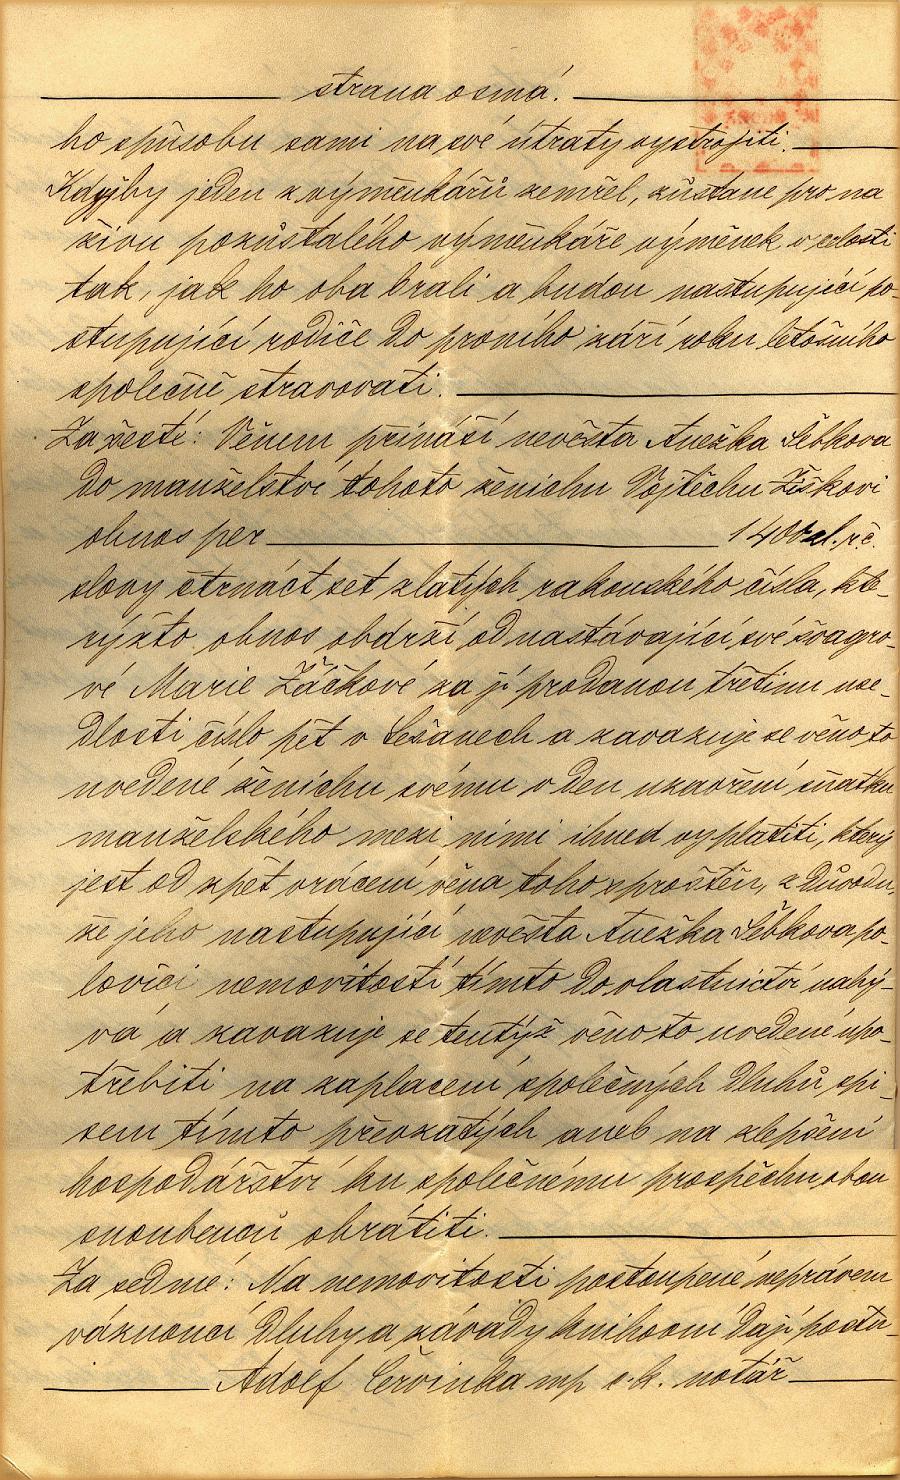 strana osmá.
ho spůsobu sami na své útraty vystrojiti.
Kdyžby jeden z výměnkářů zemřel, zůstane pro na
živu pozůstalého výměnkáře výměnek v celosti
tak, jak ho oba brali a budou nastupující po-
stupující rodiče do prvního září roku letošního
společně stravovati.
Za šesté: Věnem přináší nevěsta Anežka Šebkova
do manželství tohoto ženichu Vojtěchu Žiškovi
obnos per 1400 zl. r. č.
slovy čtrnáct set zlatých rakouského čísla, kte-
rýžto obnos obdrží od nastávající své švagro-
vé Marie Žáčkové za jí prodanou třetinu use-
dlosti číslo pět v Lešanech a zavazuje se věno to
uvedené ženichu svému v den uzavření sňatku
manželského mezi nimi ihned vyplatiti, který
jest od zpět vrácení věna toho sproštěn, z důvodu,
že jeho nastupující nevěsta Anežka Šebkova po-
lovici nemovitostí tímto do vlastnictví nabý-
vá a zavazuje se tentýž věno to uvedené upo-
třebiti na zaplacení společných dluhů spi-
sem tímto převzatých aneb na zlepšení
hospodářství ku společnému prospěchu obou
snoubenců obrátiti.
Za sedmé: Na nemovitosti postoupené neprávem
váznoucí dluhy a závady knihovní dají postu-
Adolf Červinka mp c. k. notář